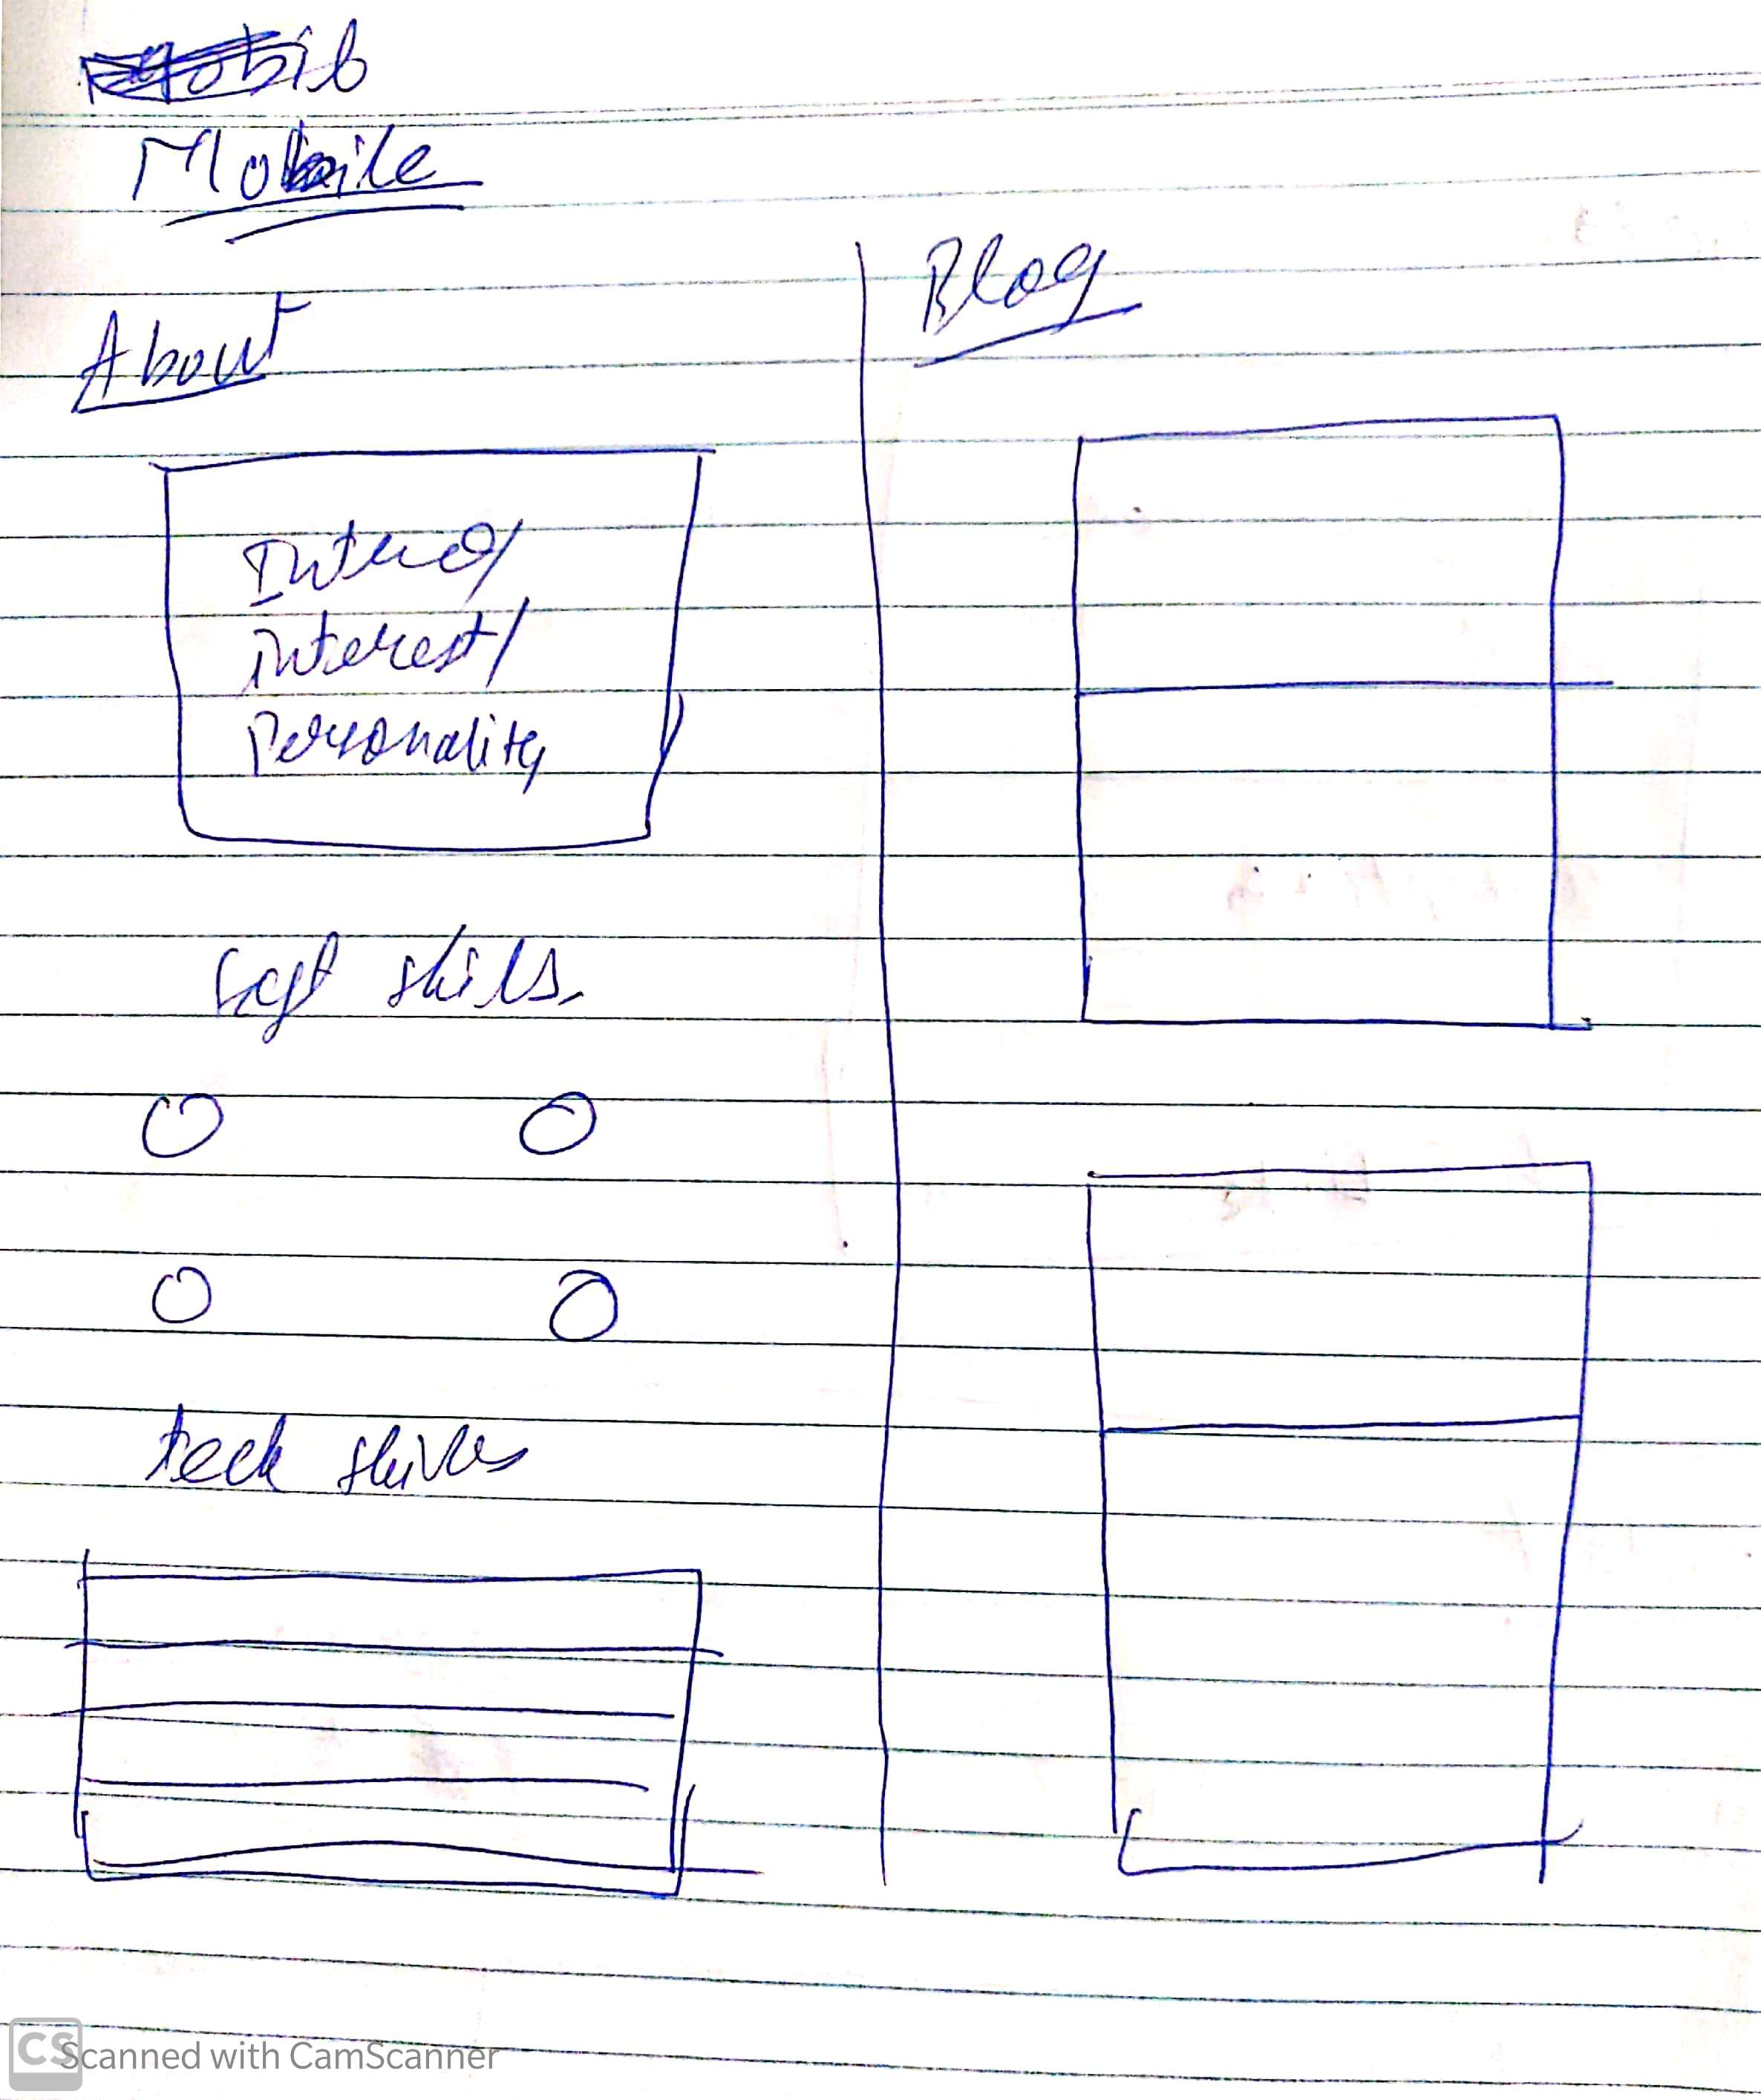 Mobile
About
Intro/
interest/
Personality
Soft skills
tech skills
Blog
CS Scanned with CamScanner